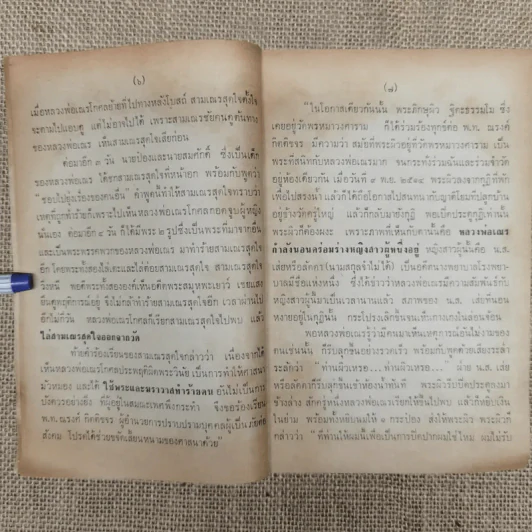 (๖)
เมื่อหลวงพ่อเณรโกคลย้ายที่ไปทางหลังโบสถ์ สามเณรสุดใจตั้งใจ
จะตามไปแอบดู แต่ไม่อาจไปได้ เพราะสามเณรชัยคนดูต้นทาง
ของหลวงพ่อเณร เห็นสามเณรสุดใจเสียก่อน
ต่อมาอีก ๓ วัน นายป๋องและนายสมศักดิ์ ซึ่งเป็นเด็ก
ของหลวงพ่อเณร ได้ชกสามเณรสุดใจที่หน้าอก พร้อมกับพูดว่า
" ชอบไปยุ่งเรื่องของคนอื่น " คำพูดนี้ทำให้สามเณรสุดใจทราบว่า
เหตุที่ถูกทำร้ายก็เพราะไปเห็นหลวงพ่อเณรโกคลกอดจูบผู้หญิง
นั้นเอง ต่อมาอีก ๙ วัน ก็ได้มีพระ ๒ รูปซึ่งเป็นพระที่มาจากอื่น
และเป็นพระพรรคพวกของหลวงพ่อเณร มาทำร้ายสามเณรสุดใจ
อีก โดยพระทั้งสองไล่เตะและไล่ต่อยสามเณรสุดใจ สามเณรสุดใจ
วิ่งหนี พอดีพระทั้งสององค์เห็นอดีตพระสมุหทะเยาว์ เขยแสง
ยืนดูพฤติการณ์อยู่ จึงไม่กล้าทำร้ายสามเณรสุดใจอีก เวลาผ่านไป
อีกไม่กี่วัน หลวงพ่อเณรโกคลก็เรียกสามเณรสุดใจไปพบ แล้ว
ไล่สามเณรสุดใจออกจากวัด
ท้ายคำร้องเรียนของสามเณรสุดใจกล่าวว่า เนื่องจากได้
เห็นหลวงพ่อเณรโกคลประพฤติผิดพระวินัย เป็นการทำให้ศาสนา
มัวหมอง และได้ ใช้พระและฆราวาสทำร้ายตน อันไม่เป็นการ
บังควรอย่างยิ่ง ที่มีอยู่ในสมณะเพศพึงกระทำ จึงขอร้องเรียน
พ.ท. ณรงค์ กิตติขจร ผู้อำนวยการปราบปรามบุคคลผู้เป็นภัยต่อ
สังคม โปรดได้ช่วยขจัดเสี้ยนหนามของศาสนาด้วย"
(๗)
"ในโอกาสเดียวกันนั้น พระภิกษุผิว ฐิตะธรรมโม ซึ่ง
เคยอยู่วัดพรหมวงศาราม ก็ได้ร่วมร้องทุกข์ต่อ พ.ท. ณรงค์
กิตติขจร มีความว่า สมัยที่พระผิวอยู่ที่วัดพรหมวงศาราม เป็น
พระที่สนิทกับหลวงพ่อเณรมาก จนกระทั่งร่วมฉันและร่วมจำวัด
อยู่ห้องเดียวกัน เมื่อวันที่ ๙ พ.ย. ๒๕๑๔ พระผิวลงจากกุฏิที่พัก
เพื่อไปสรงน้ำ แล้วก็ได้ถือโอกาสไปสนทนากับญาติโยมที่ปลูกบ้าน
อยู่ข้างวัดครู่ใหญ่ แล้วก็กลับมายังกุฏิ พอเปิดประตูกุฏิเท่านั้น
พระผิวก็ต้องผงะ เพราะภาพที่เห็นกับตานั้นคือ หลวงพ่อเณร
กำลังนอนคร่อมร่างหญิงสาวผู้หนึ่งอยู่ หญิงสาวผู้นั้นคือ น.ส.
เสย่หรือลัคดา(นามสกุลจำไม่ได้) เป็นคนใช้ของนางพยาบาลโรงพยา-
บาลมีชื่อแห่งหนึ่ง ซึ่งได้ข่าวว่าหลวงพ่อเณรมีความสัมพันธ์กับ
หญิงสาวผู้นั้นมาเป็นเวลานานแล้ว สภาพของ น.ส. เสย่ที่นอน
หงายอยู่ในกุฏินั้น กระโปรงเลิกขึ้นจนเห็นกางเกงในล่อนจ้อน
พอหลวงพ่อเณรรู้ว่ามีคนมาเห็นเหตุการณ์อันไม่งามของ
ตนเช่นนั้น ก็รีบลุกขึ้นอย่างรวดเร็ว พร้อมกับพูดด้วยเสียงระล่ำ
ระลักว่า " ท่านผิวเหรอ ...ท่านผิวเหรอ..." ฝ่าย น.ส. เสย่
หรือลัคดาก็รีบลุกขึ้นเข้าห้องน้ำทันที พระผิวรีบปิดประตูลงมา
ข้างล่าง สักครู่หนึ่งหลวงพ่อเณรเรียกให้ขึ้นไปพบ แล้วก็หยิบเงิน
ในย่าม พร้อมทั้งหยิบนมให้ ๑ กระป๋อง ส่งให้พระผิว พระผิวก็
กล่าวว่า " ที่ท่านให้ผมนี้เพื่อเป็นการปิดปากผมใช่ไหม ผมไม่รับ